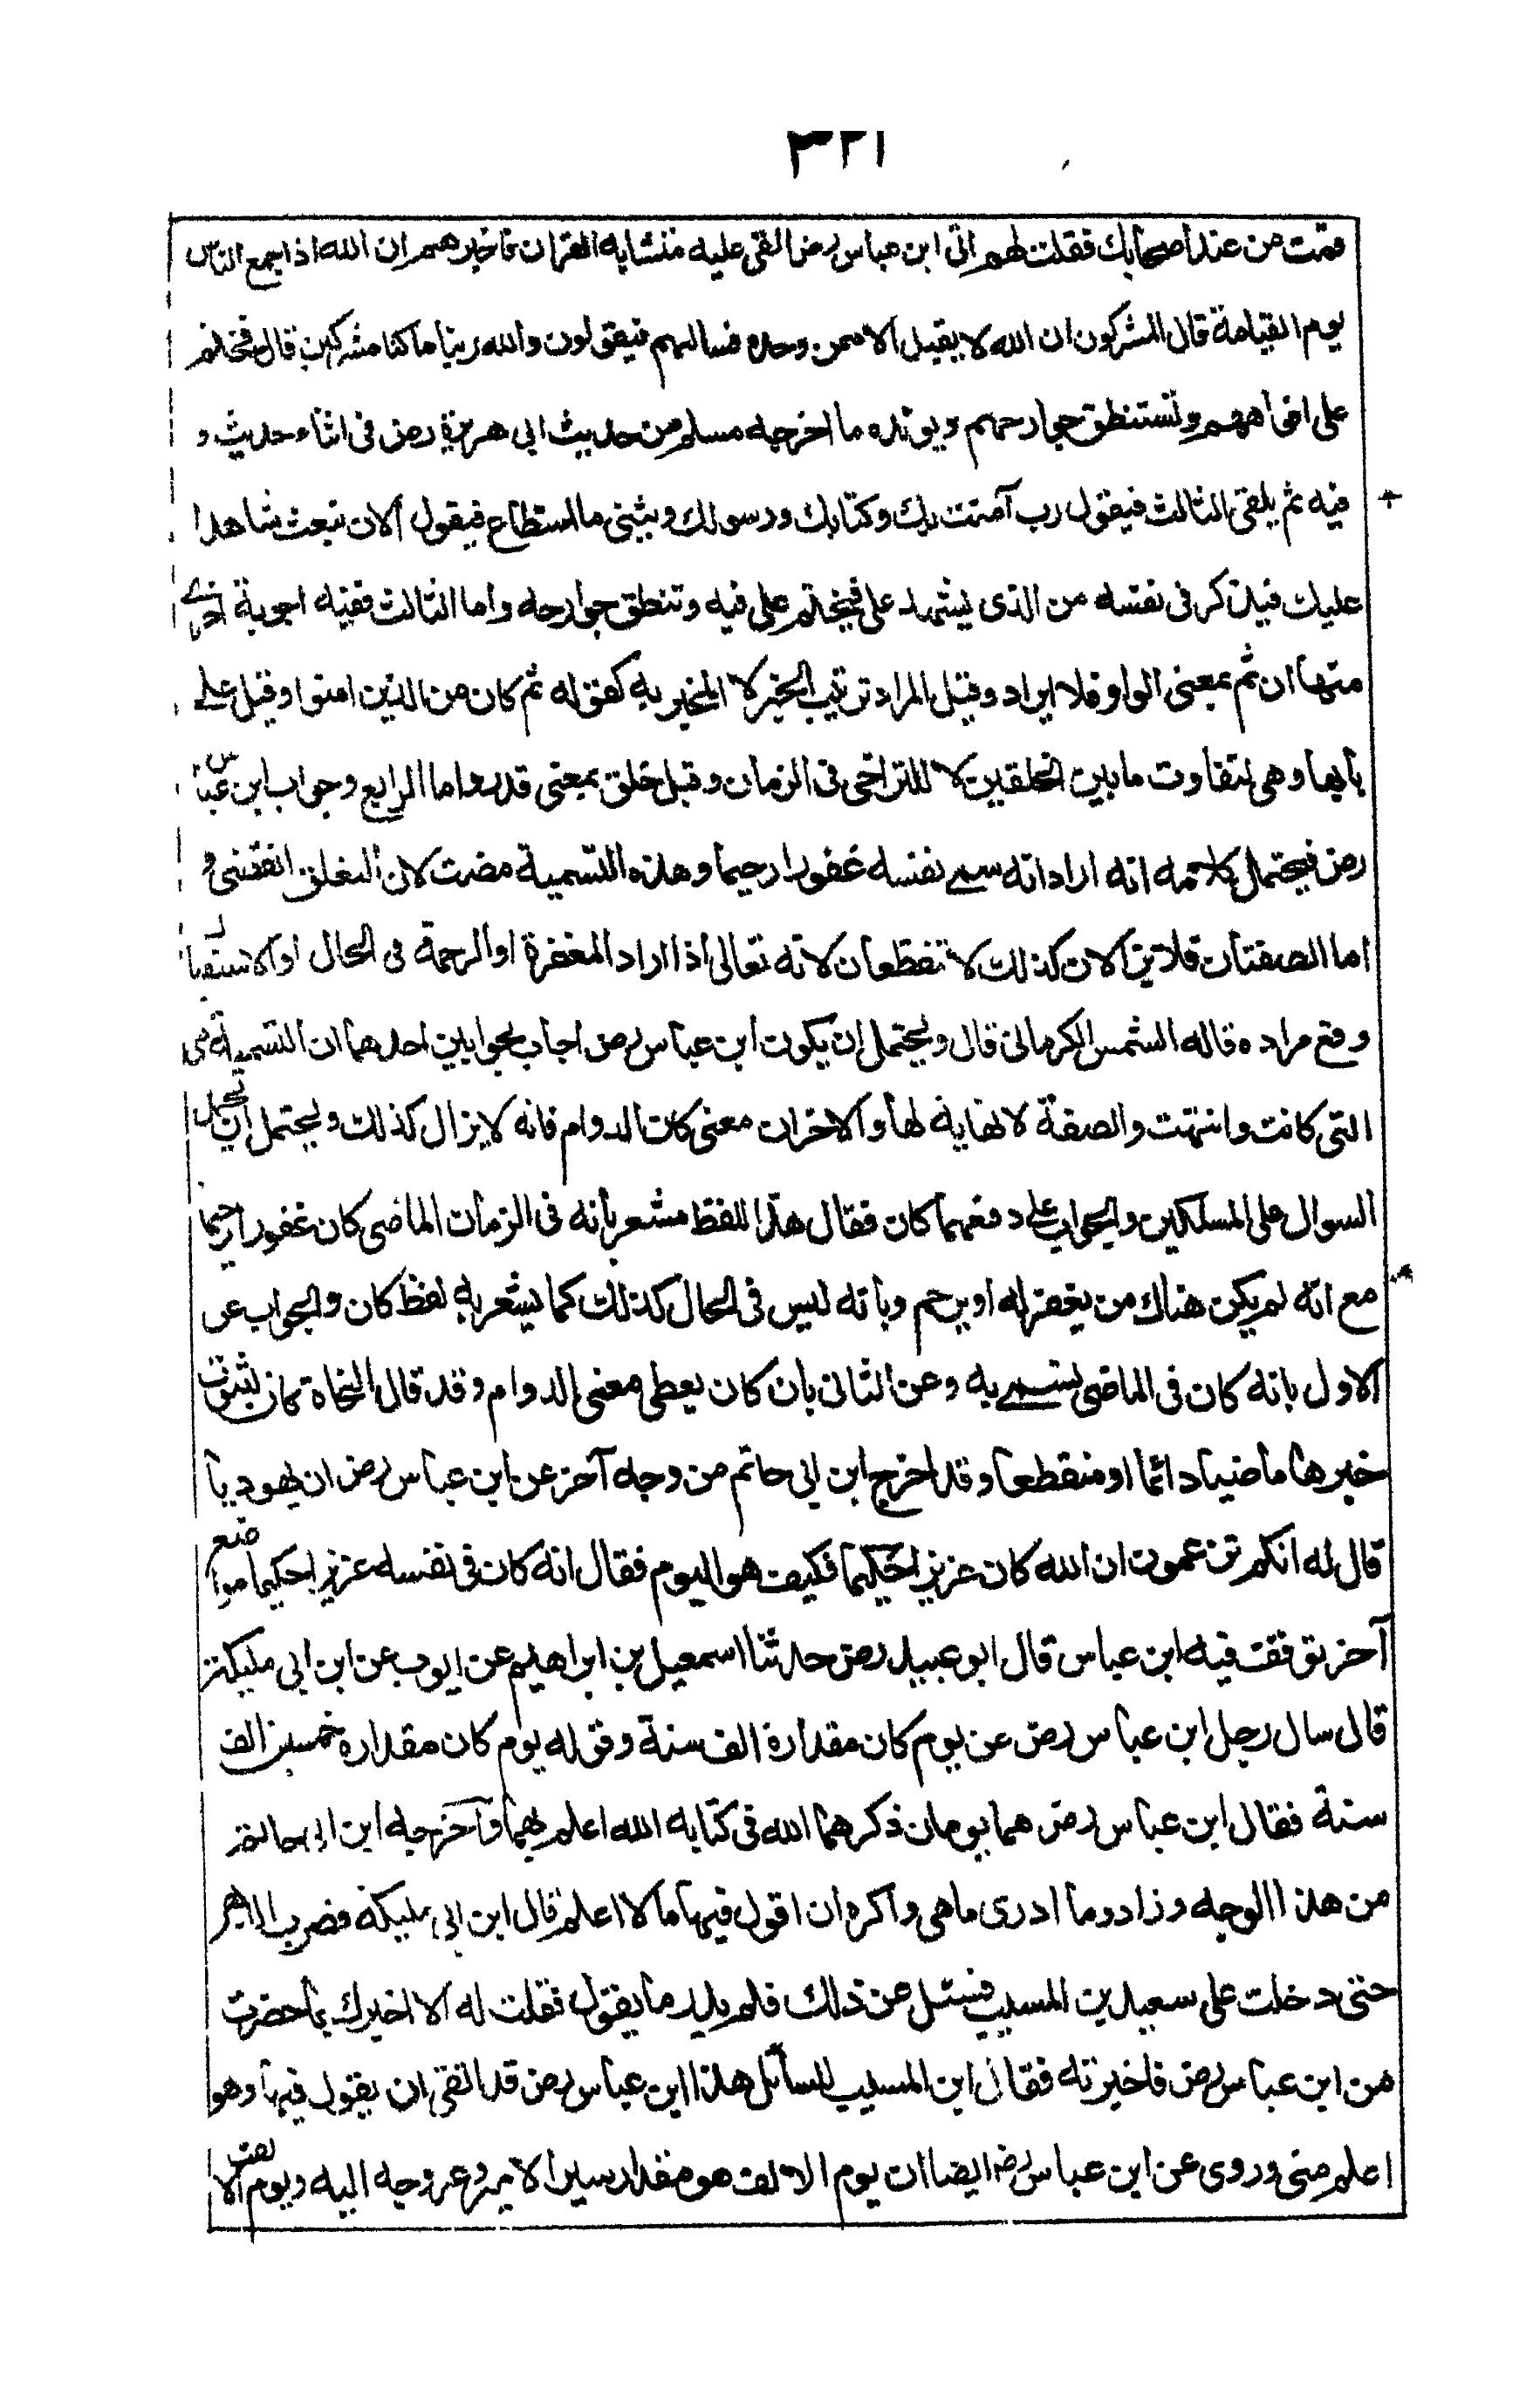 ٣٢١
قمت من عند اصحابك فقلت لهم اتى ابن عباس رض القى عليه متشابه القران فاخبرهم ان الله اذا جمع الناس
يوم القيامة قال المشركون ان الله لا يقبل الا ممن وحده فسالهم فيقولون والله ربنا ما كنا مشركين قال فيختم
على افواههم وتستنطق جوارحهم ويؤيده ما اخرجه مسلم من حديث ابى هريرة رض فى اثناء حديث و
فيه ثم يلقى الثالث فيقول رب آمنت بك وكتابك ورسولك ويثنى ما استطاع فيقول الان نبعث شاهدا
عليك فيذكر فى نفسه من الذى يشهد على فيختم على فيه وتنطق جوارحه واما الثالث ففيه اجوبة اخرى
منها ان ثم بمعنى الواو فلا ايراد وقيل المراد ترتيب الخبر لا المخبر به كقوله ثم كان من الذين امنوا وقيل على
بابها وهى لتفاوت ما بين الخلقين لا للتراخى فى الزمان وقيل خلق بمعنى قدر واما الرابع وجواب ابن عباس
رض فيحتمل كلامه انه اراد انه سمى نفسه غفورا رحيما وهذه التسمية مضت لان التعلق انقضى و
اما الصفتان فلا تزالان كذلك لا تنقطعان لانه تعالى اذا اراد المغفرة او الرحمة فى الحال او الاستقبال
وقع مراده قاله الشمس الكرمانى قال ويحتمل ان يكون ابن عباس رض اجاب بجوابين احدهما ان التسمية هى
التى كانت وانتهت والصفة لا نهاية لها والاخران معنى كان الدوام فانه لا يزال كذلك ويحتمل ان يحمل
السوال على المسلكين والجواب على دفعهما كان فقال هذا اللفظ مشعر بانه فى الزمان الماضى كان غفورا رحيما
مع انه لم يكن هناك من يغفر له او يرحم وبانه ليس فى الحال كذلك كما يشعر به لفظ كان والجواب عن
الاول بانه كان فى الماضى يسمى به وعن الثانى بان كان يعطى معنى الدوام وقد قال النحاة كان لثبوت
خبرها ماضيا دائما او منقطعا وقد اخرج ابن ابى حاتم من وجه آخر عن ابن عباس رض ان يهوديا
قال له انكم تزعمون ان الله كان عزيزا حكيما فكيف هو اليوم فقال انه كان فى نفسه عزيزا حكيما موضع
آخر توقف فيه ابن عباس قال ابو عبيد رض حدثنا اسمعيل بن ابراهيم عن ايوب عن ابن ابى مليكة
قال سال رجل ابن عباس رض عن يوم كان مقداره الف سنة وقوله يوم كان مقداره خمسين الف
سنة فقال ابن عباس رض هما يومان ذكرهما الله فى كتابه الله اعلم بهما وآخرجه ابن ابى حاتم
من هذا الوجه وزاد وما ادرى ماهى واكره ان اقول فيها ما لا اعلم قال ابن ابى مليكة فضرب الدهر
حتى دخلت على سعيد بن المسيب فسئل عن ذلك فلم يدر ما يقول فقلت له الا اخبرك بما حضرت
من ابن عباس رض فاخبرته فقال ابن المسيب للسائل هذا ابن عباس رض قد اتقى ان يقول فيها وهو
اعلم منى وروى عن ابن عباس رض ايضا ان يوم الالف هو مقدار سير الامر وعروجه اليه ويوم الالف